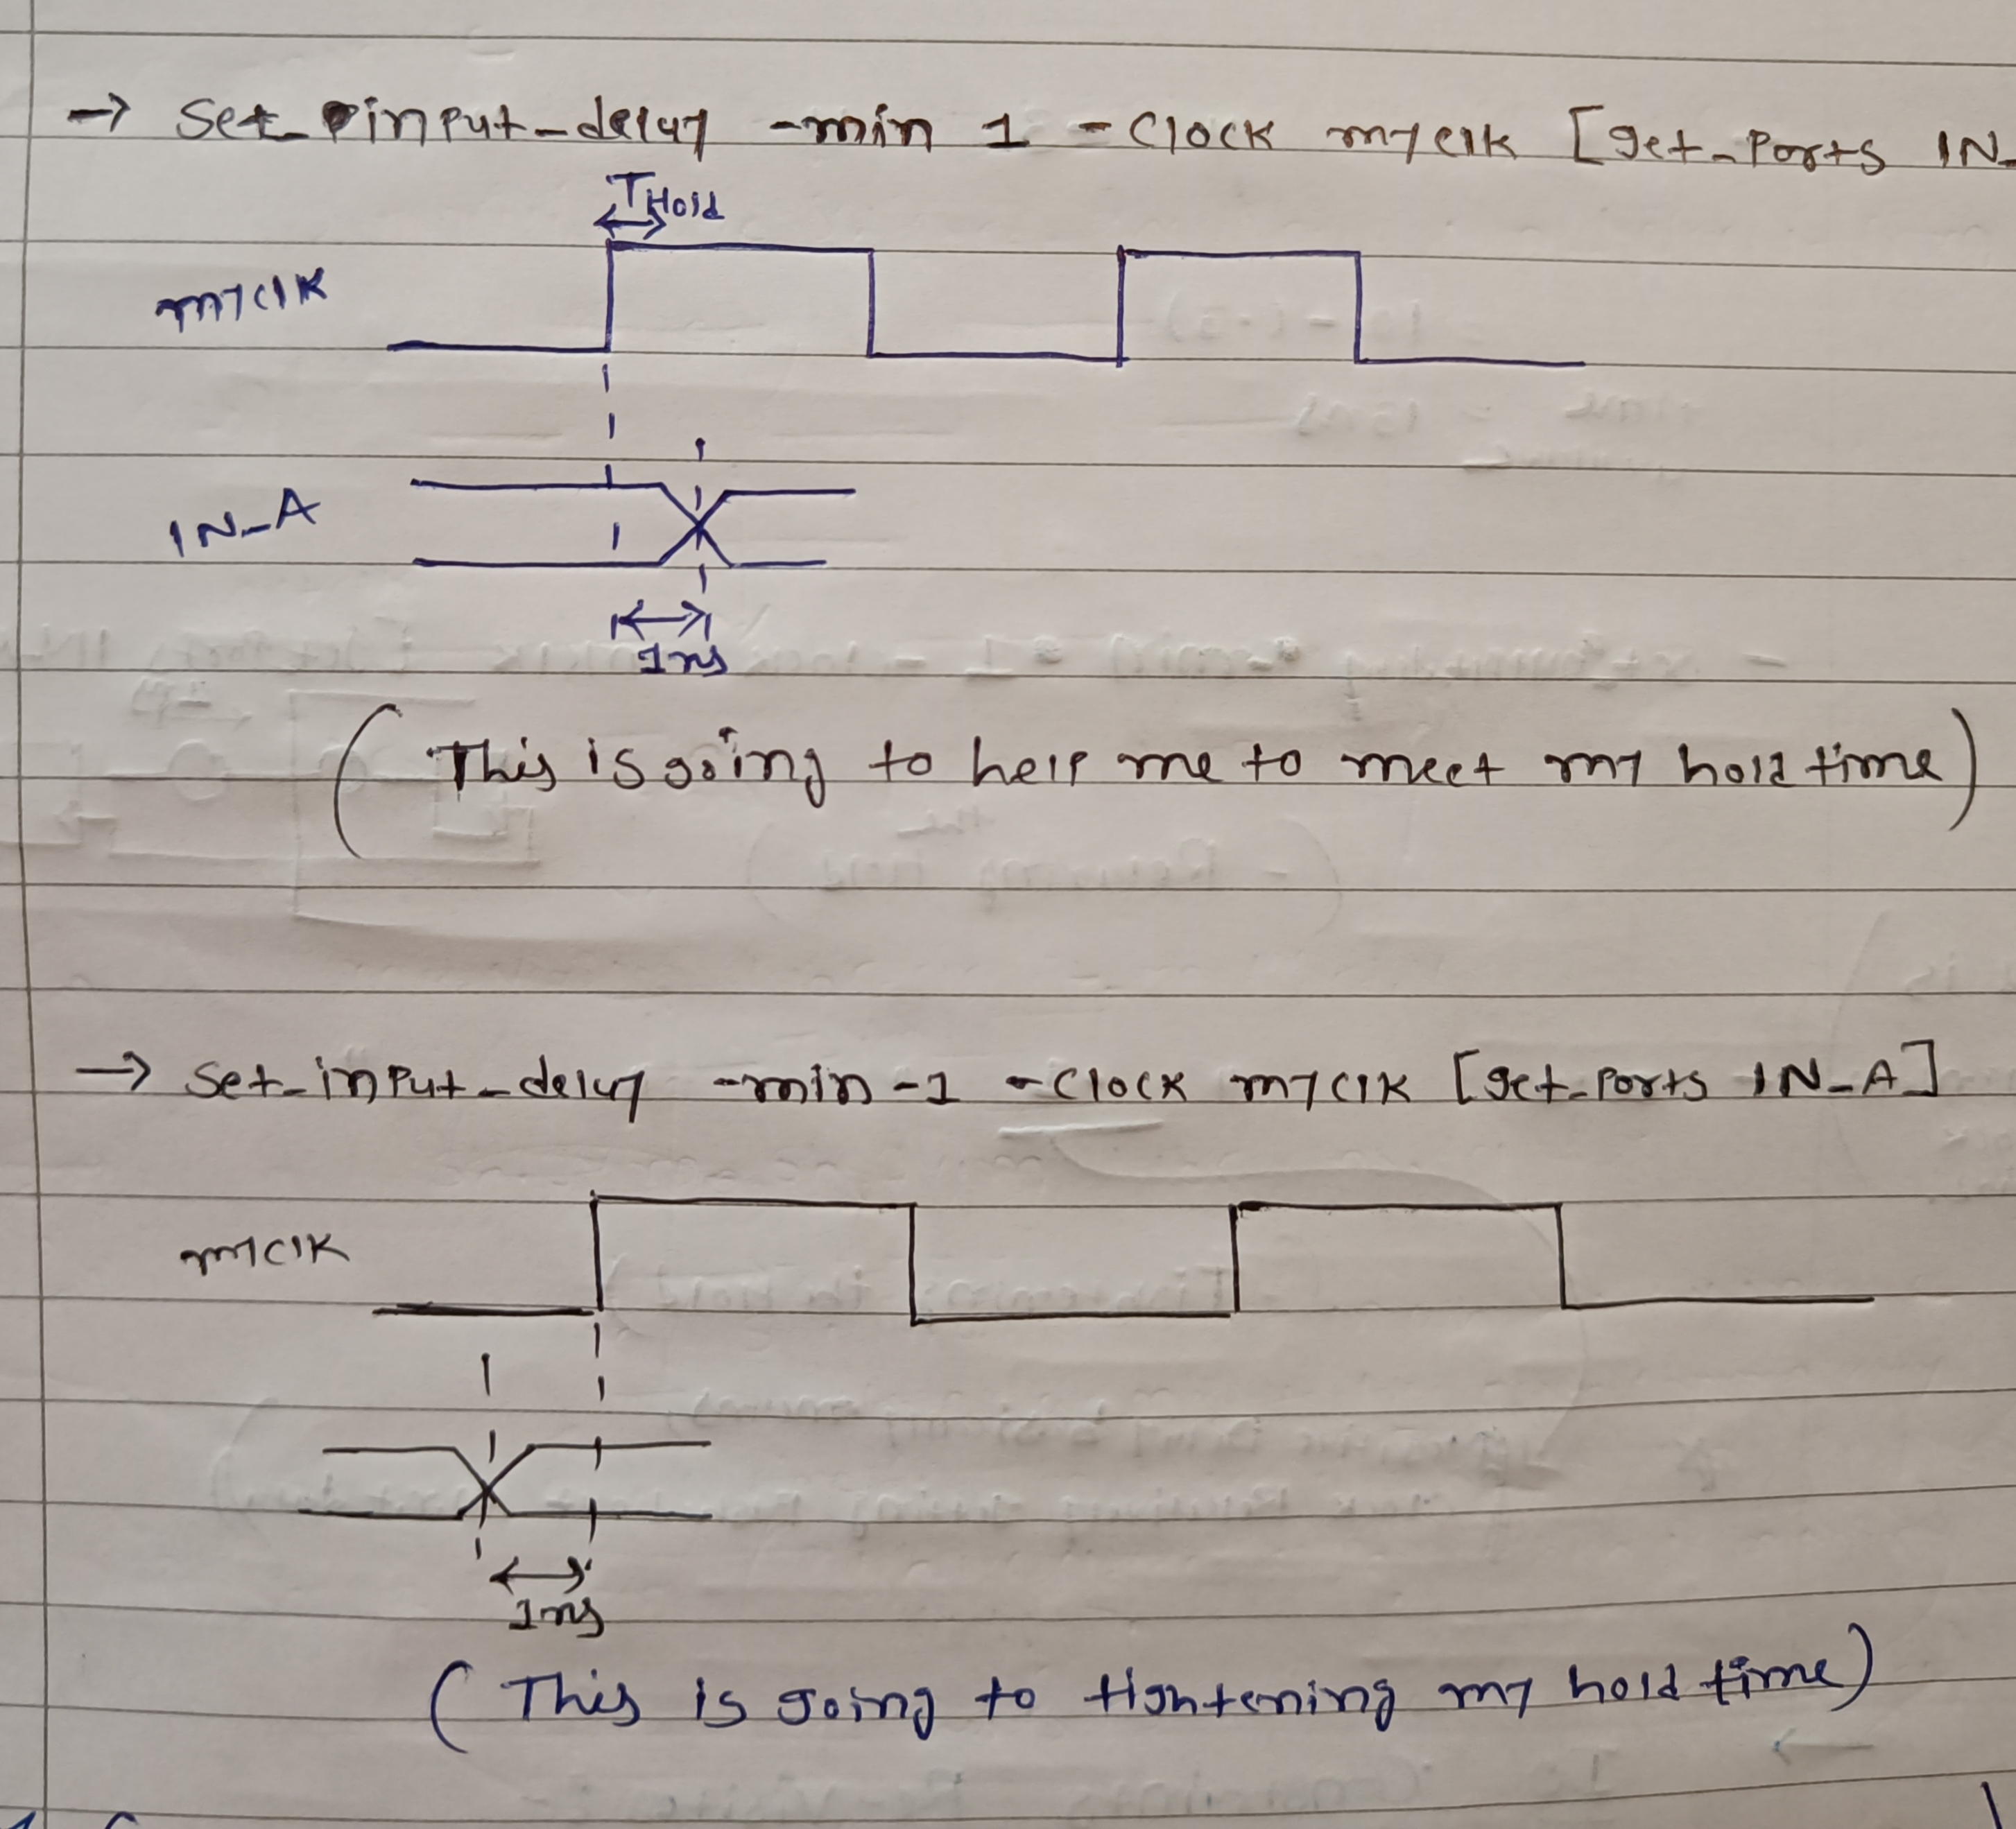 → set_input_delay -min 1 -clock myclk [get_ports IN_
THold
myclk
IN_A
1ns
(This is going to help me to meet my hold time)
→ set_input_delay -min -1 -clock myclk [get_ports IN_A]
myclk
1ns
(This is going to tightening my hold time)